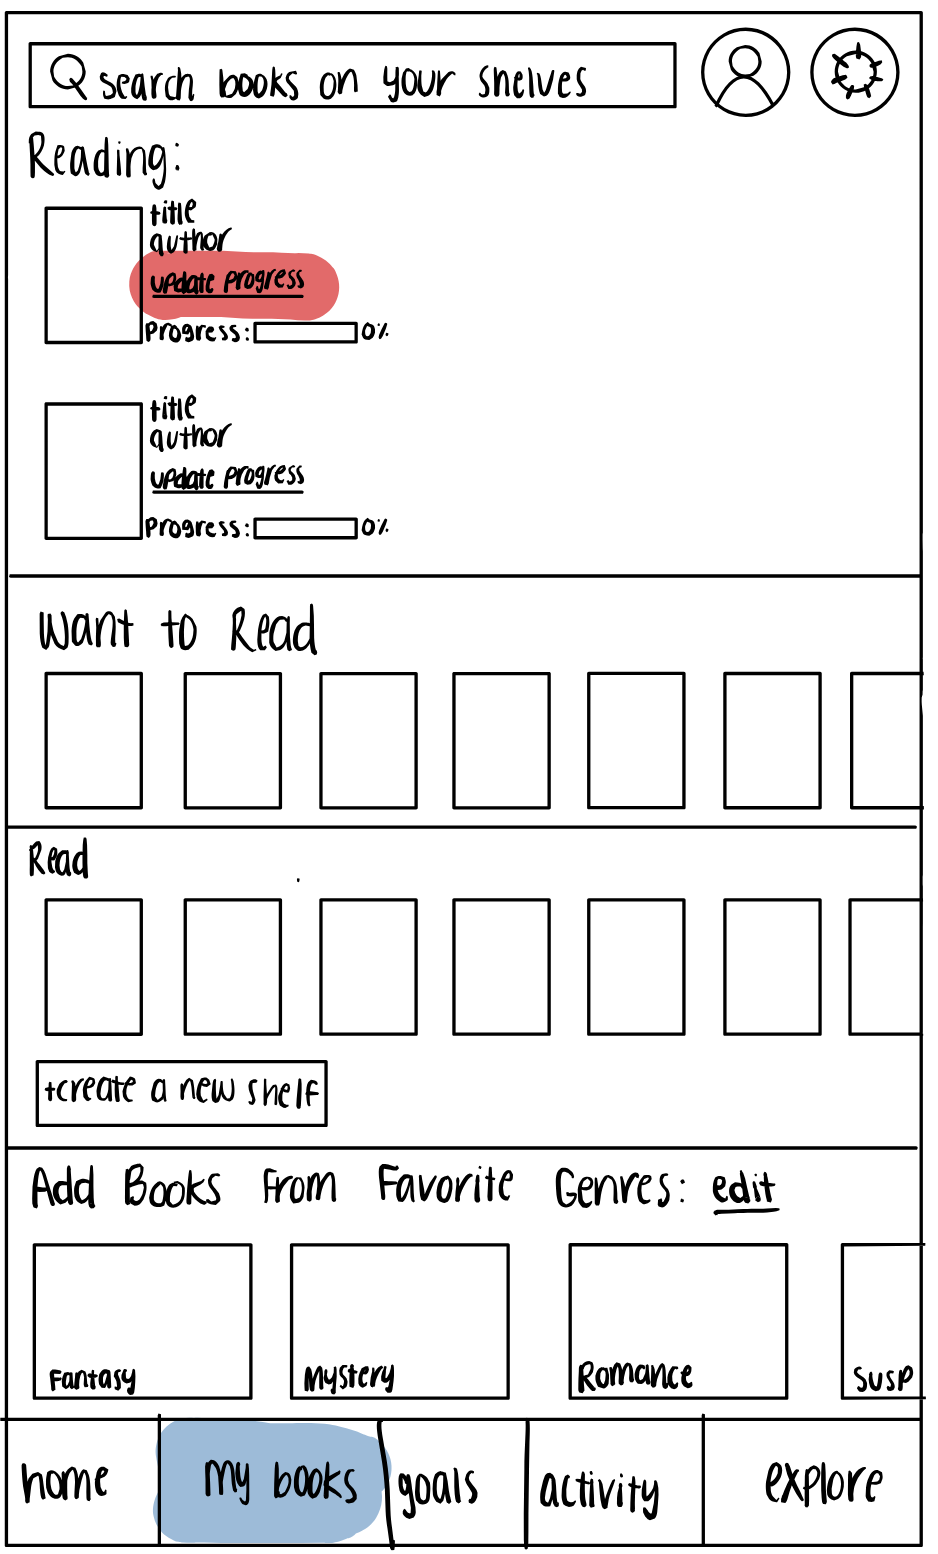 search books on your shelves
Reading:
title
author
update progress
Progress: 0%
title
author
update progress
Progress: 0%
Want to Read
Read
+create a new shelf
Add Books From Favorite Genres: edit
Fantasy
Mystery
Romance
Susp
home
my books
goals
activity
explore